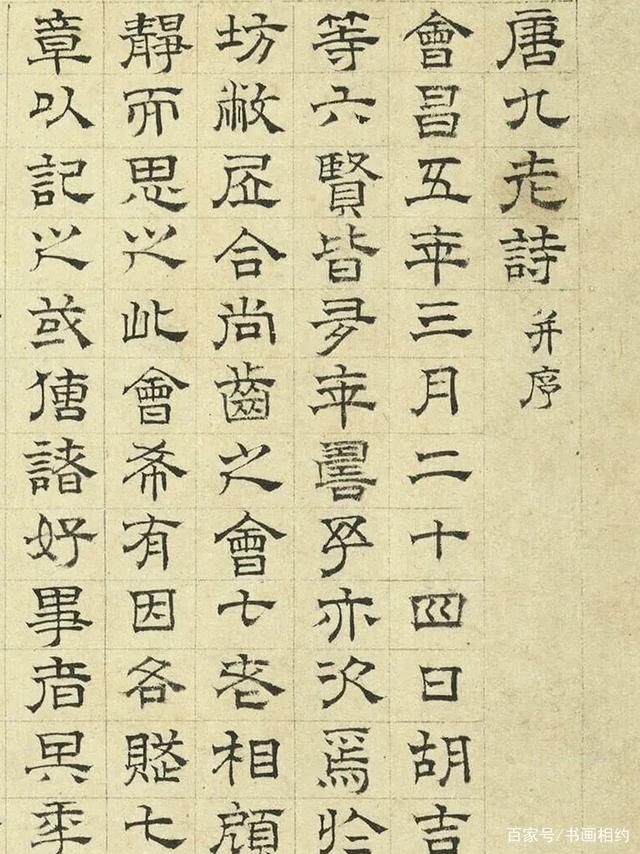 唐九老詩并序
會昌五年三月二十四日胡吉
等六賢皆多年壽予亦次焉於
坊敝居合尚齒之會七老相顧
靜而思之此會希有因各賦七
章以記之或傳諸好事者其年
百家号/书画相约